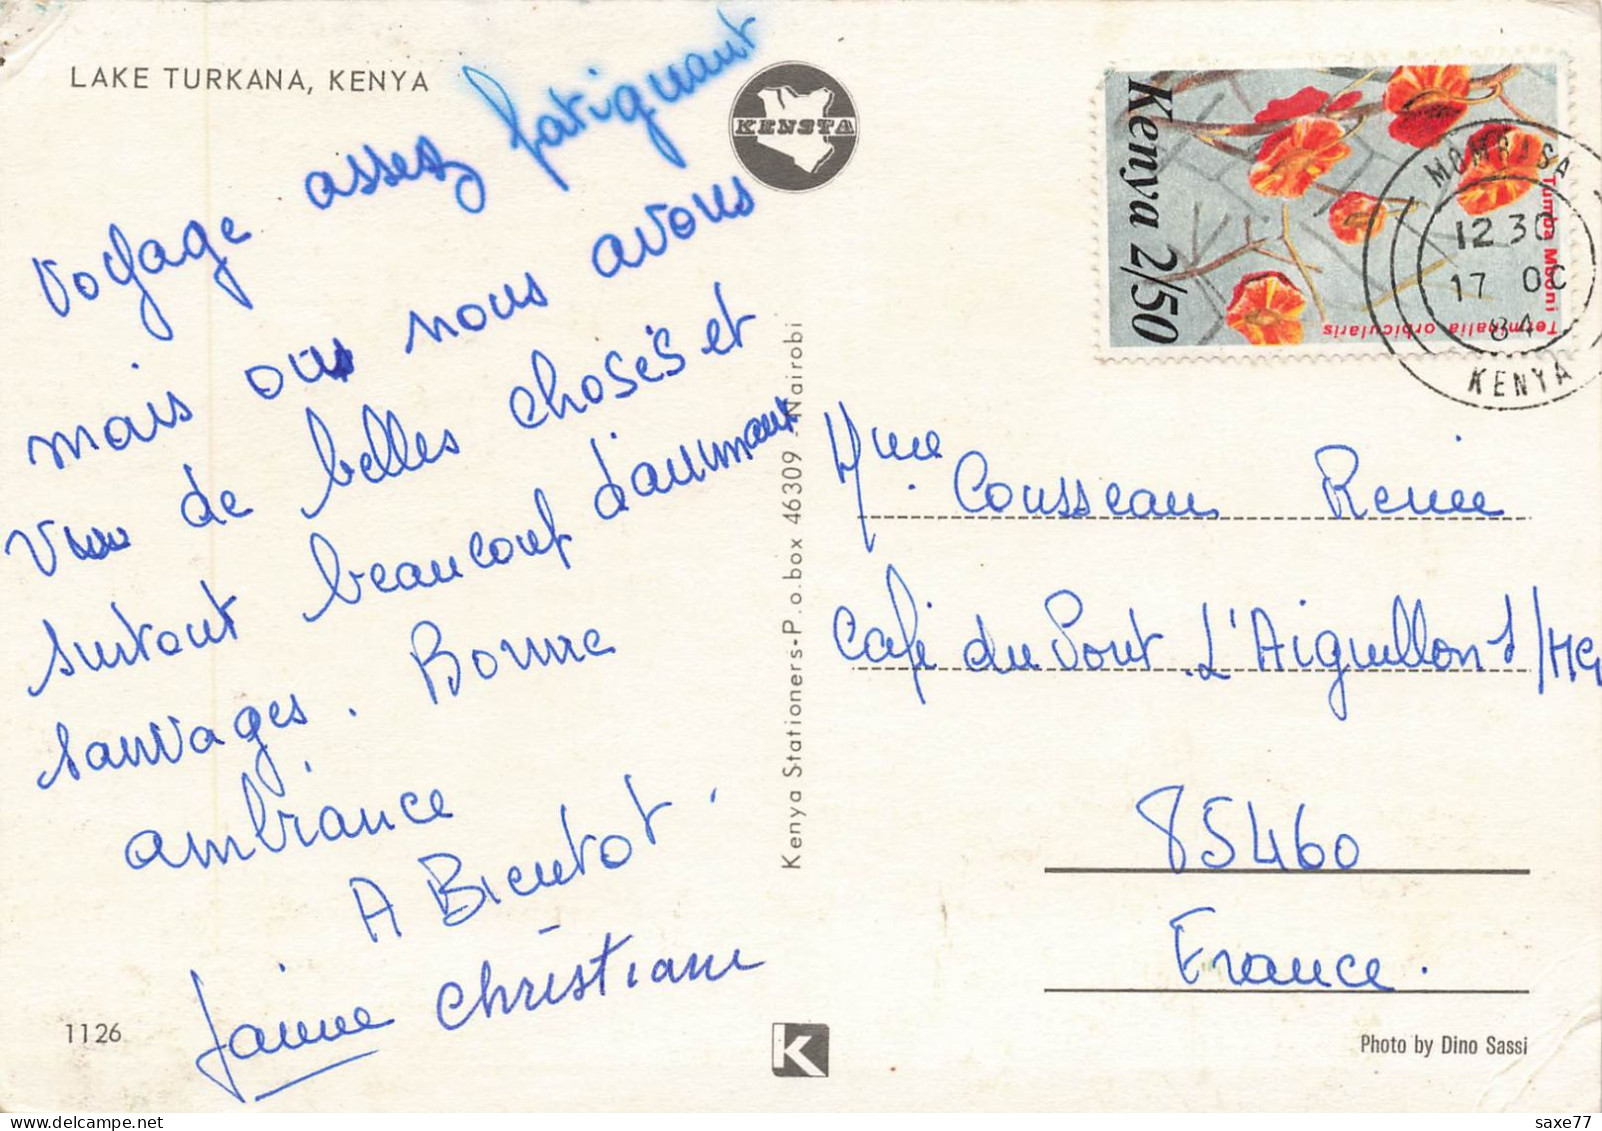 LAKE TURKANA, KENYA
voyage assez fatiguant
mais ou nous avons
vu de belles choses et
surtout beaucoup d'animaux
sauvages. Bonne
ambiance
A Bientot.
christiane
1126
KENSTA
Kenya Stationers-P.o.box 46309 Nairobi
K
Kenya 2/50
Tumba Mboni
Termnalia orbicularis
MOMBASA
12 30
17 OC
84
KENYA
Mme Cousseau Renée
Café du Pont L'Aiguillon s/
85460
France.
Photo by Dino Sassi
saxe77